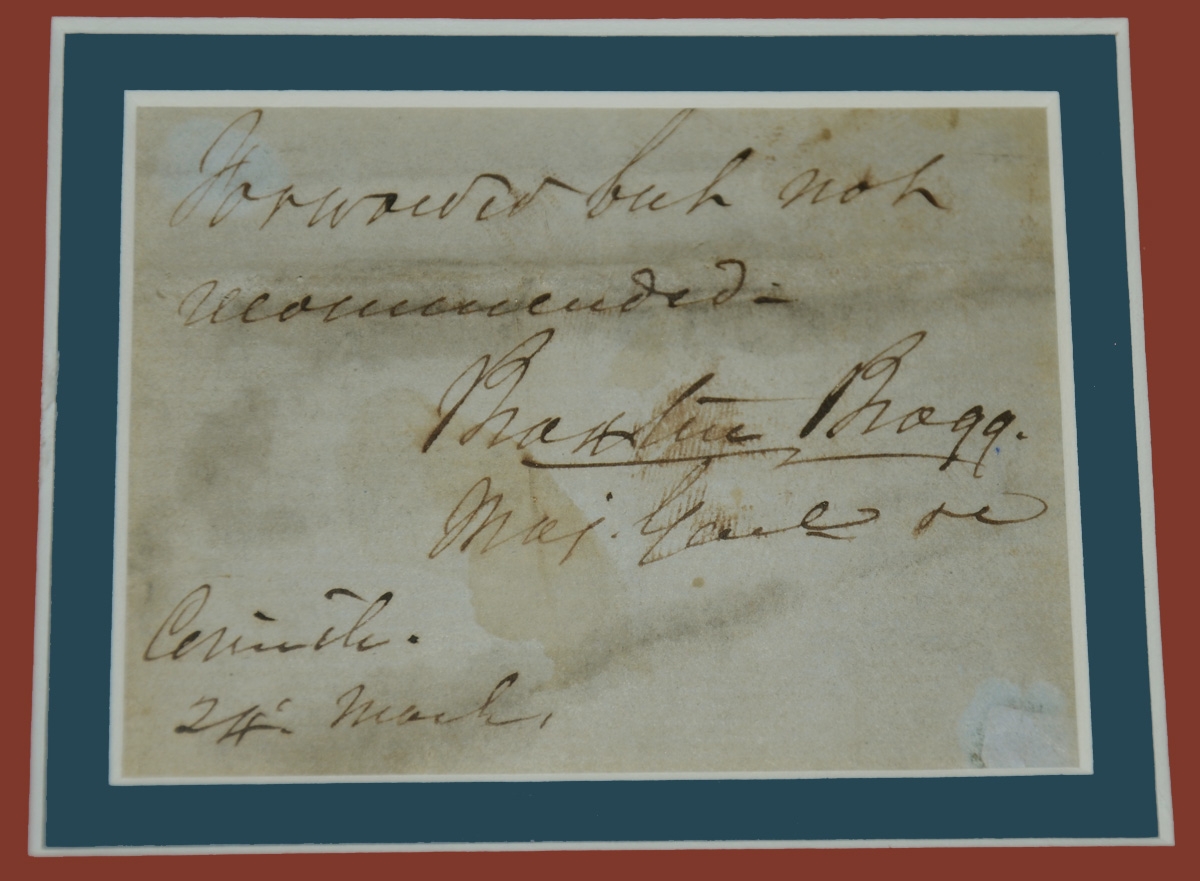 Forwarded but not
recommended -
Braxton Bragg.
Maj. Genl &c
Corinth.
24. March,